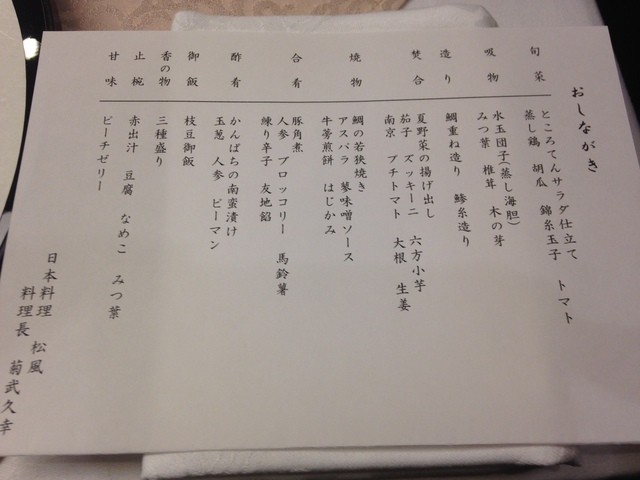 おしながき
旬菜
ところてんサラダ仕立て トマト
蒸し鶏 胡瓜 錦糸玉子
吸物
水玉団子(蒸し海胆)
みつ葉 椎茸 木の芽
造り
鯛重ね造り 鯵糸造り
焚合
夏野菜の揚げ出し 六方小芋
茄子 ズッキーニ 大根 生姜
南京 プチトマト
焼物
鯛の若狭焼き
アスパラ 蓼味噌ソース
牛蒡煎餅 はじかみ
合肴
豚角煮
人参 ブロッコリー 馬鈴薯
練り辛子 友地餡
酢肴
かんぱちの南蛮漬け
玉葱 人参 ピーマン
御飯
枝豆御飯
香の物
三種盛り
止椀
赤出汁 豆腐 なめこ みつ葉
甘味
ピーチゼリー
日本料理 松風
料理長 菊武久幸